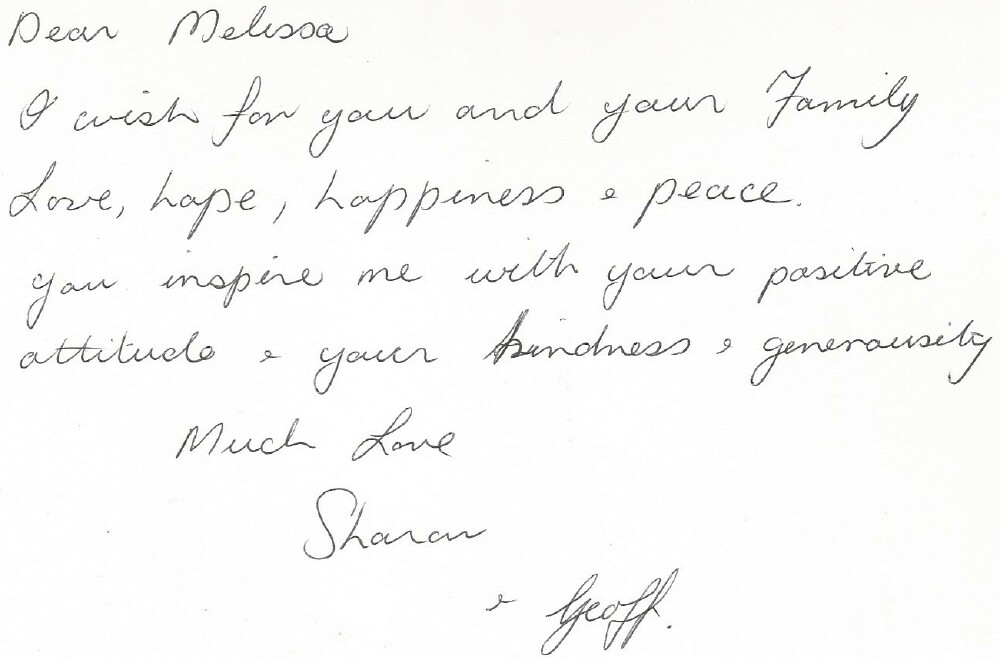 Dear Melissa
I wish for you and your Family
Love, hope, happiness & peace.
you inspire me with your positive
attitude & your kindness & generousity
Much Love
Sharon
& Geoff.